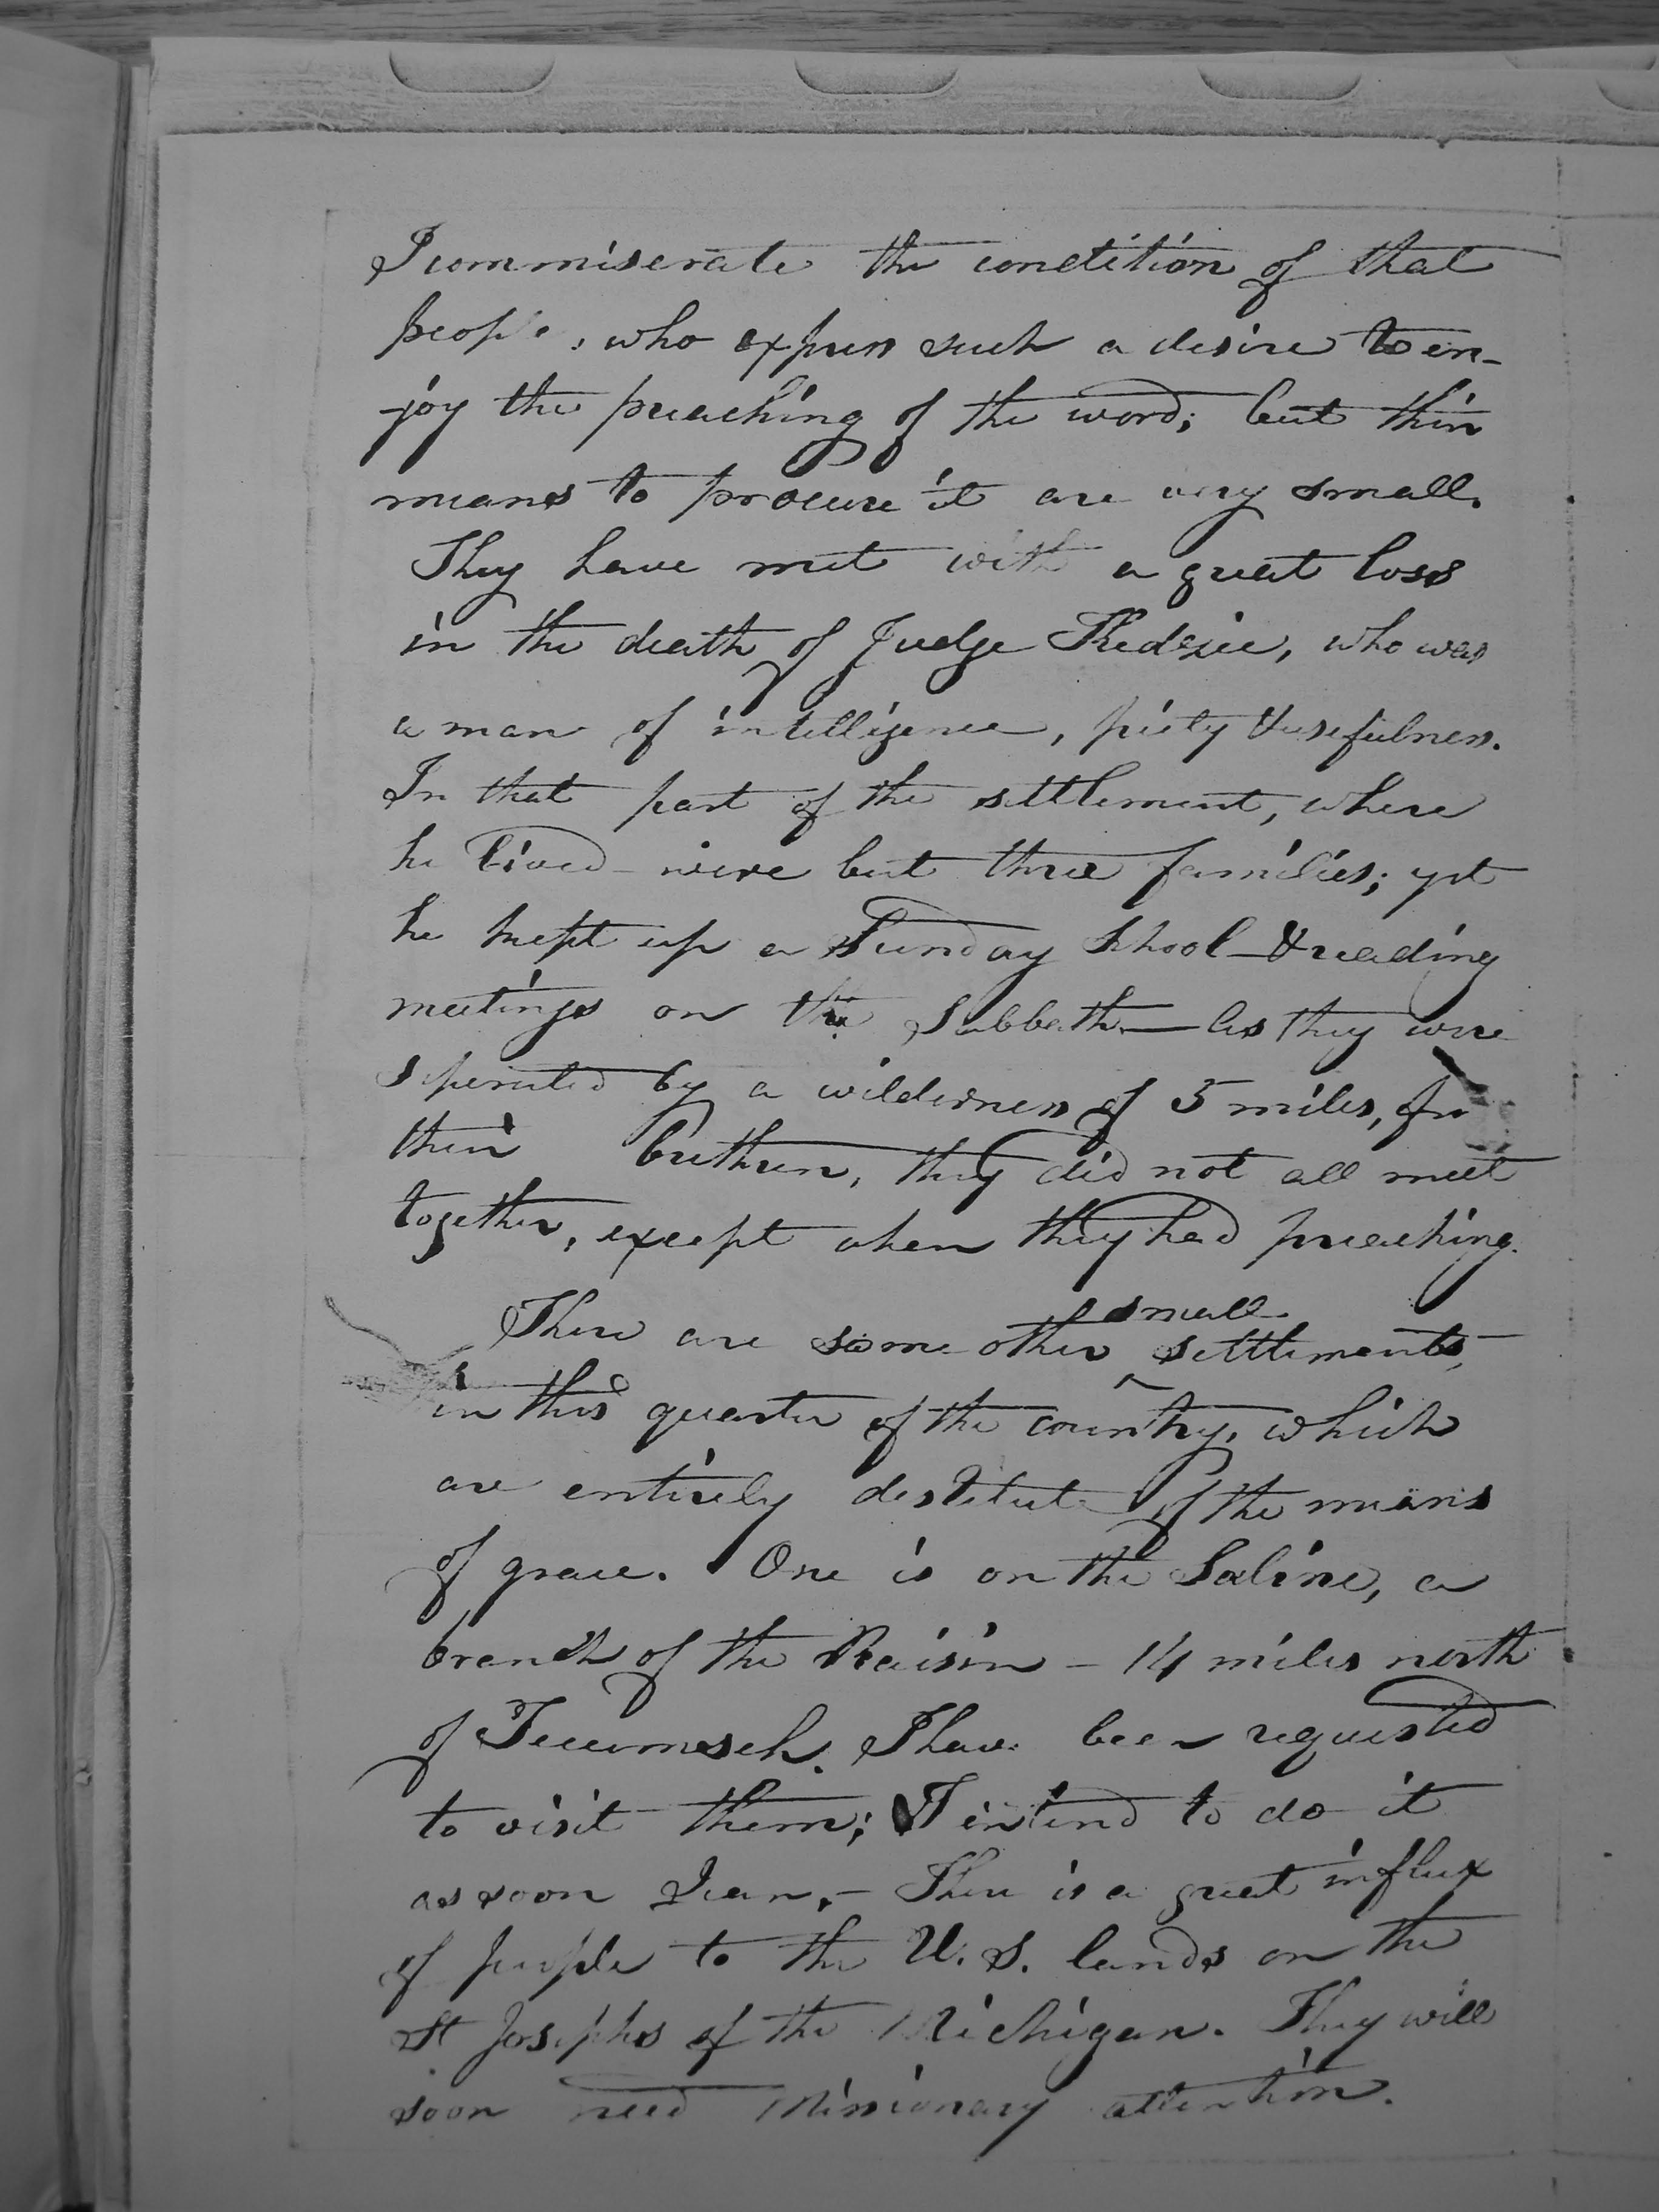 I commiserate the condition of that
people, who express such a desire to en-
joy the preaching of the word; but their
means to procure it are very small.
They have met with a great loss
in the death of Judge Kedzie, who was
a man of intelligence, piety & usefulness.
In that part of the settlement, where
he lived were but three families; yet
he kept up a Sunday School & reading
meetings on the Sabbath — As they were
seperated by a wilderness of 5 miles, from
their brethren, they did not all meet
together, except when they had preaching.
There are some other ^small settlements,
in this quarter of the country, which
are entirely destitute of the means
of grace. One is on the Saline, a
branch of the Raisin - 14 miles north
of Tecumseh. I have been requested
to visit them; I intend to do it
as soon I can. - There is a great influx
of people to the U. S. lands on the
St Josephs of the Michigan. They will
soon need Missionary attention.